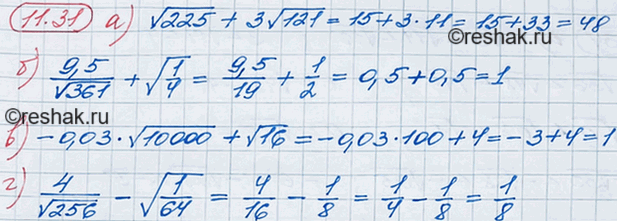 11.31 а) √225 + 3√121 = 15 + 3·11 = 15 + 33 = 48
б) 9,5/√361 + √(1/4) = 9,5/19 + 1/2 = 0,5 + 0,5 = 1
в) -0,03·√10000 + √16 = -0,03·100 + 4 = -3 + 4 = 1
г) 4/√256 - √(1/64) = 4/16 - 1/8 = 1/4 - 1/8 = 1/8